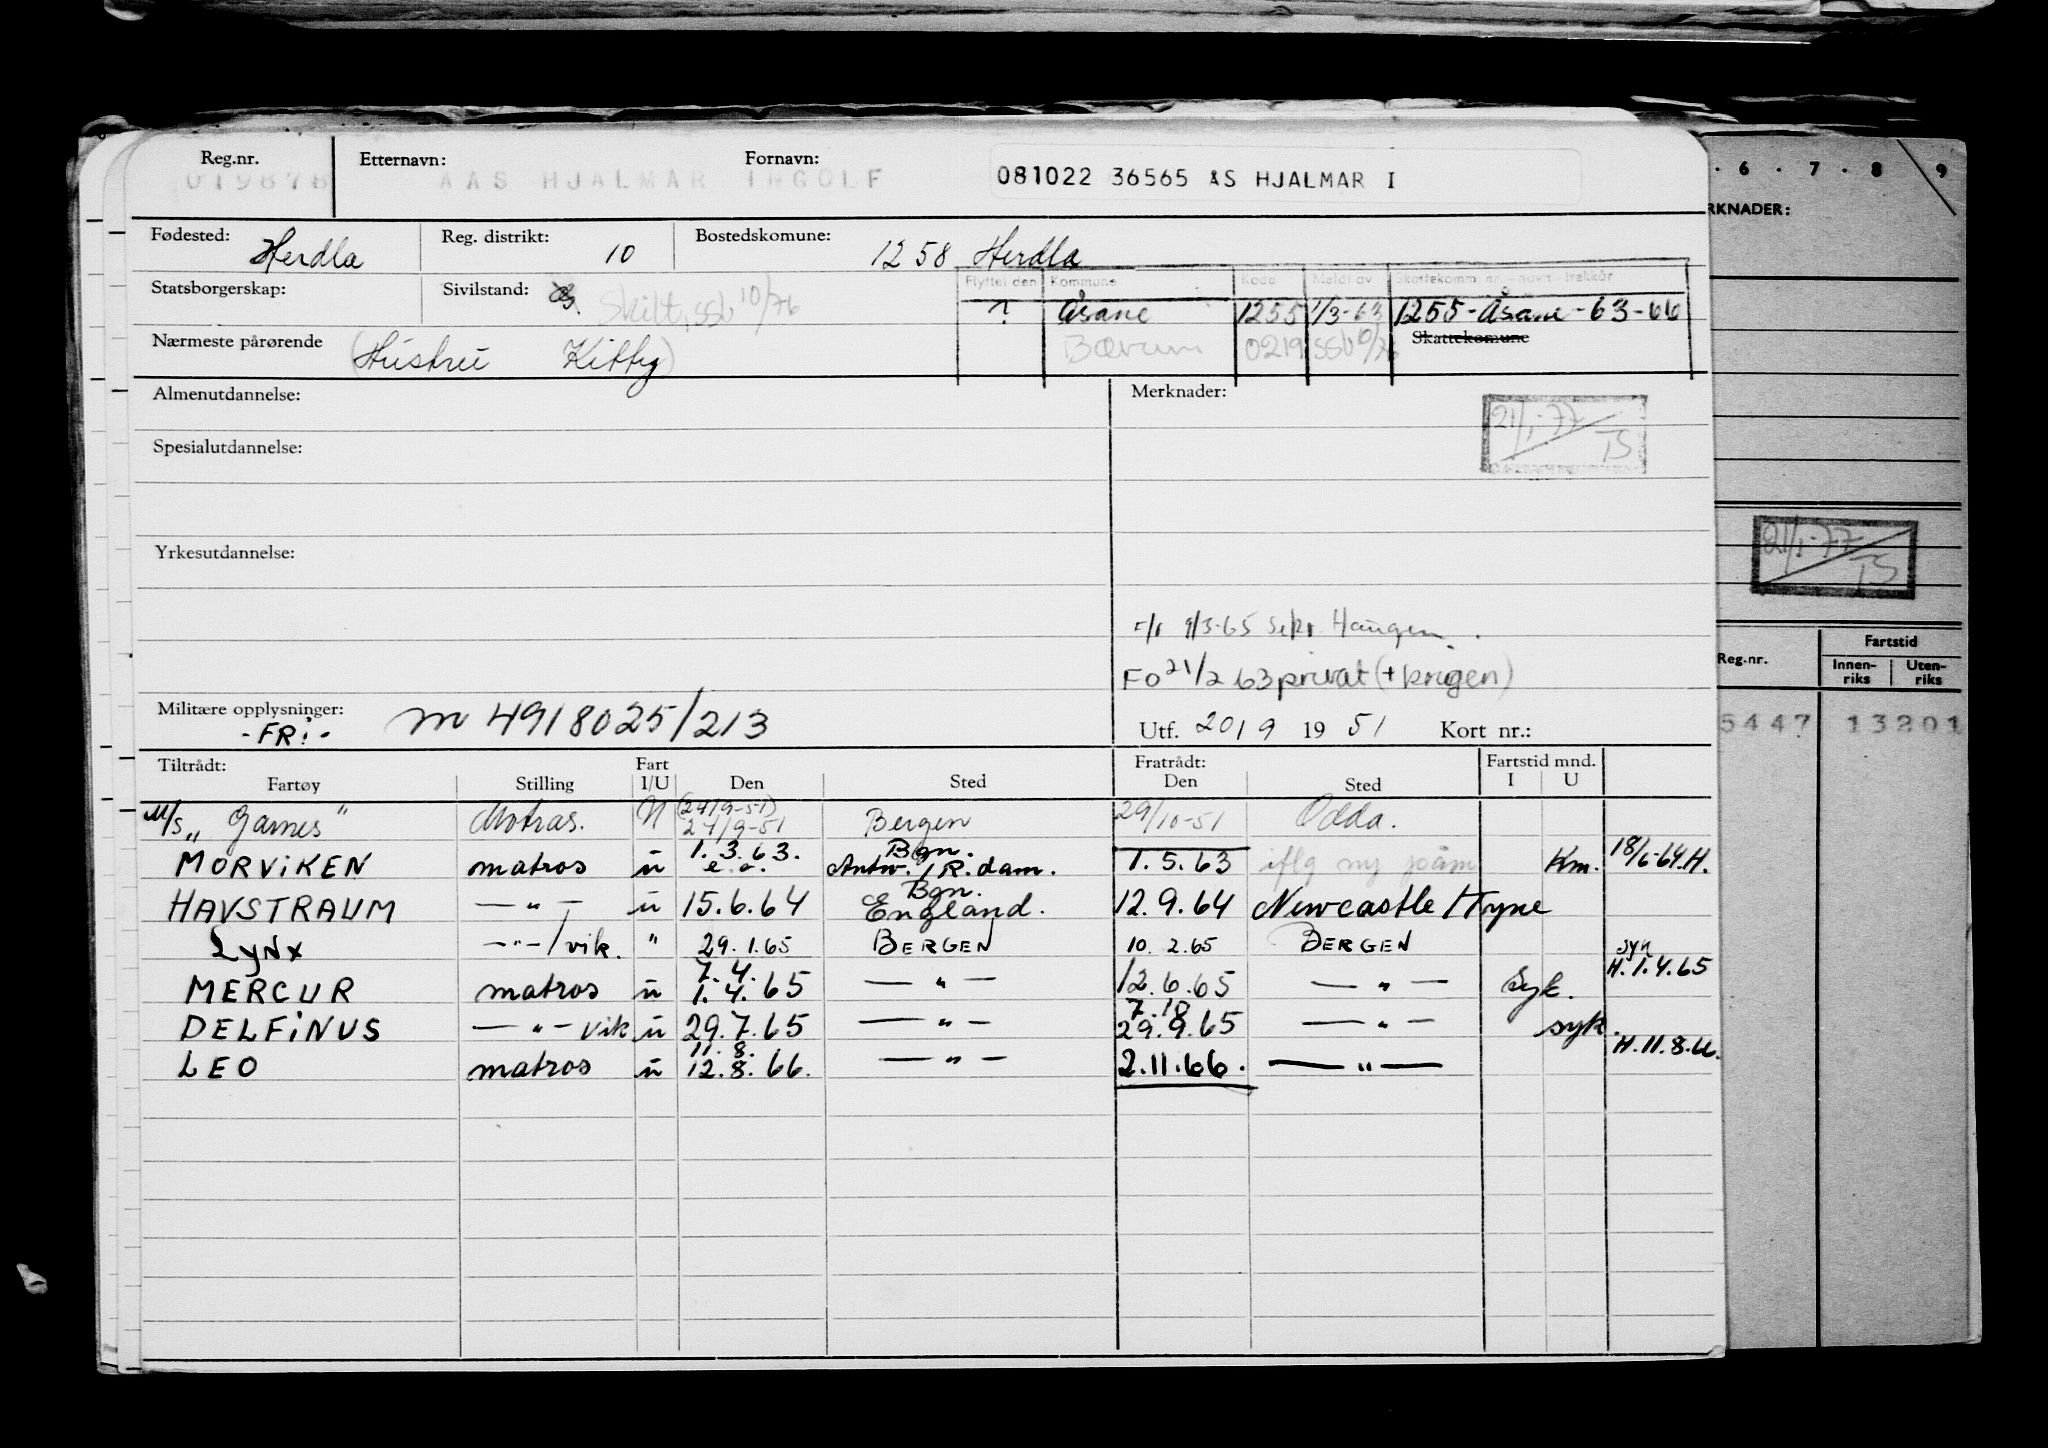 Reg.nr. Etternavn: Fornavn:
019878 AAS HJALMAR INGOLF 081022 36565 AS HJALMAR I
Fødested: Herdla Reg. distrikt: 10 Bostedskomune: 1258 Herdla
Statsborgerskap: Sivilstand: Skilt, SSb 10/76
Flyttet den Kommune Kode Meldt av Skattekomm. nr. - navn - trekkår
? Åsane 1255 1/3-63 1255-Åsane-63-66
Bærum 0219 SSb 10/76 Skattekomune
Nærmeste pårørende (Hustru Kitty)
Almenutdannelse: Merknader:
21/1-77 TS
Spesialutdannelse:
Yrkesutdannelse:
9/3-65 Haugen.
FO 21/2 63 privat (+ krigen)
Militære opplysninger: m 4918025/213
-FRi- Utf. 20/9 1951 Kort nr.:
Tiltrådt: Fart Fratrådt: Fartstid mnd.
Fartøy Stilling I/U Den Sted Den Sted I U
M/S "Garnes" Matros. N (24/9-51) 24/9-51 Bergen 29/10-51 Odda.
MORVIKEN matros u 1.3.63. e.o. Bgn. Antw./R.dam. 1.5.63 iflg ny Km. 18/6-64.H.
HAVSTRAUM — " — u 15.6.64 Bgn. England. 12.9.64 Newcastle/Tyne
LyNx — " — / vik. " 29.1.65 BERGEN 10.2.65 BERGEN syk
MERCUR matros u 7.4. 1.4.65 — " — 12.6.65 — " — Syk. H.1.4.65
DELFINUS — " — vik u 29.7.65 — " — 7.18 29.9.65 — " — syk.
LEO matros u 11.8. 12.8.66. — " — 2.11.66. — " — H.11.8.66.
6 . 7 . 8 9
RKNADER:
21/1-77 TS
Reg.nr. Fartstid
Innen-riks Uten-riks
5447 13201